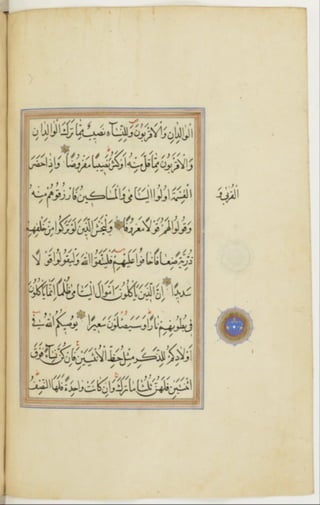 الْوَالِدَانِ وَالْأَقْرَبُونَ وَلِلنِّسَاءِ نَصِيبٌ مِمَّا تَرَكَ الْوَالِدَانِ
وَالْأَقْرَبُونَ مِمَّا قَلَّ مِنْهُ أَوْ كَثُرَ نَصِيبًا مَفْرُوضًا وَإِذَا حَضَرَ
الْقِسْمَةَ أُولُوا الْيَتَامَىٰ وَالْمَسَاكِينُ فَارْزُقُوهُمْ مِنْهُ
الْقُرْبَىٰ وَ
وَقُولُوا لَهُمْ قَوْلًا مَعْرُوفًا وَلْيَخْشَ الَّذِينَ لَوْ تَرَكُوا مِنْ خَلْفِهِمْ
ذُرِّيَّةً ضِعَافًا خَافُوا عَلَيْهِمْ فَلْيَتَّقُوا اللَّهَ وَلْيَقُولُوا قَوْلًا
سَدِيدًا إِنَّ الَّذِينَ يَأْكُلُونَ أَمْوَالَ الْيَتَامَىٰ ظُلْمًا إِنَّمَا يَأْكُلُونَ
فِي بُطُونِهِمْ نَارًا وَسَيَصْلَوْنَ سَعِيرًا يُوصِيكُمُ اللَّهُ فِي
أَوْلَادِكُمْ لِلذَّكَرِ مِثْلُ حَظِّ الْأُنْثَيَيْنِ فَإِنْ كُنَّ نِسَاءً فَوْقَ
اثْنَتَيْنِ فَلَهُنَّ ثُلُثَا مَا تَرَكَ وَإِنْ كَانَتْ وَاحِدَةً فَلَهَا النِّصْفُ